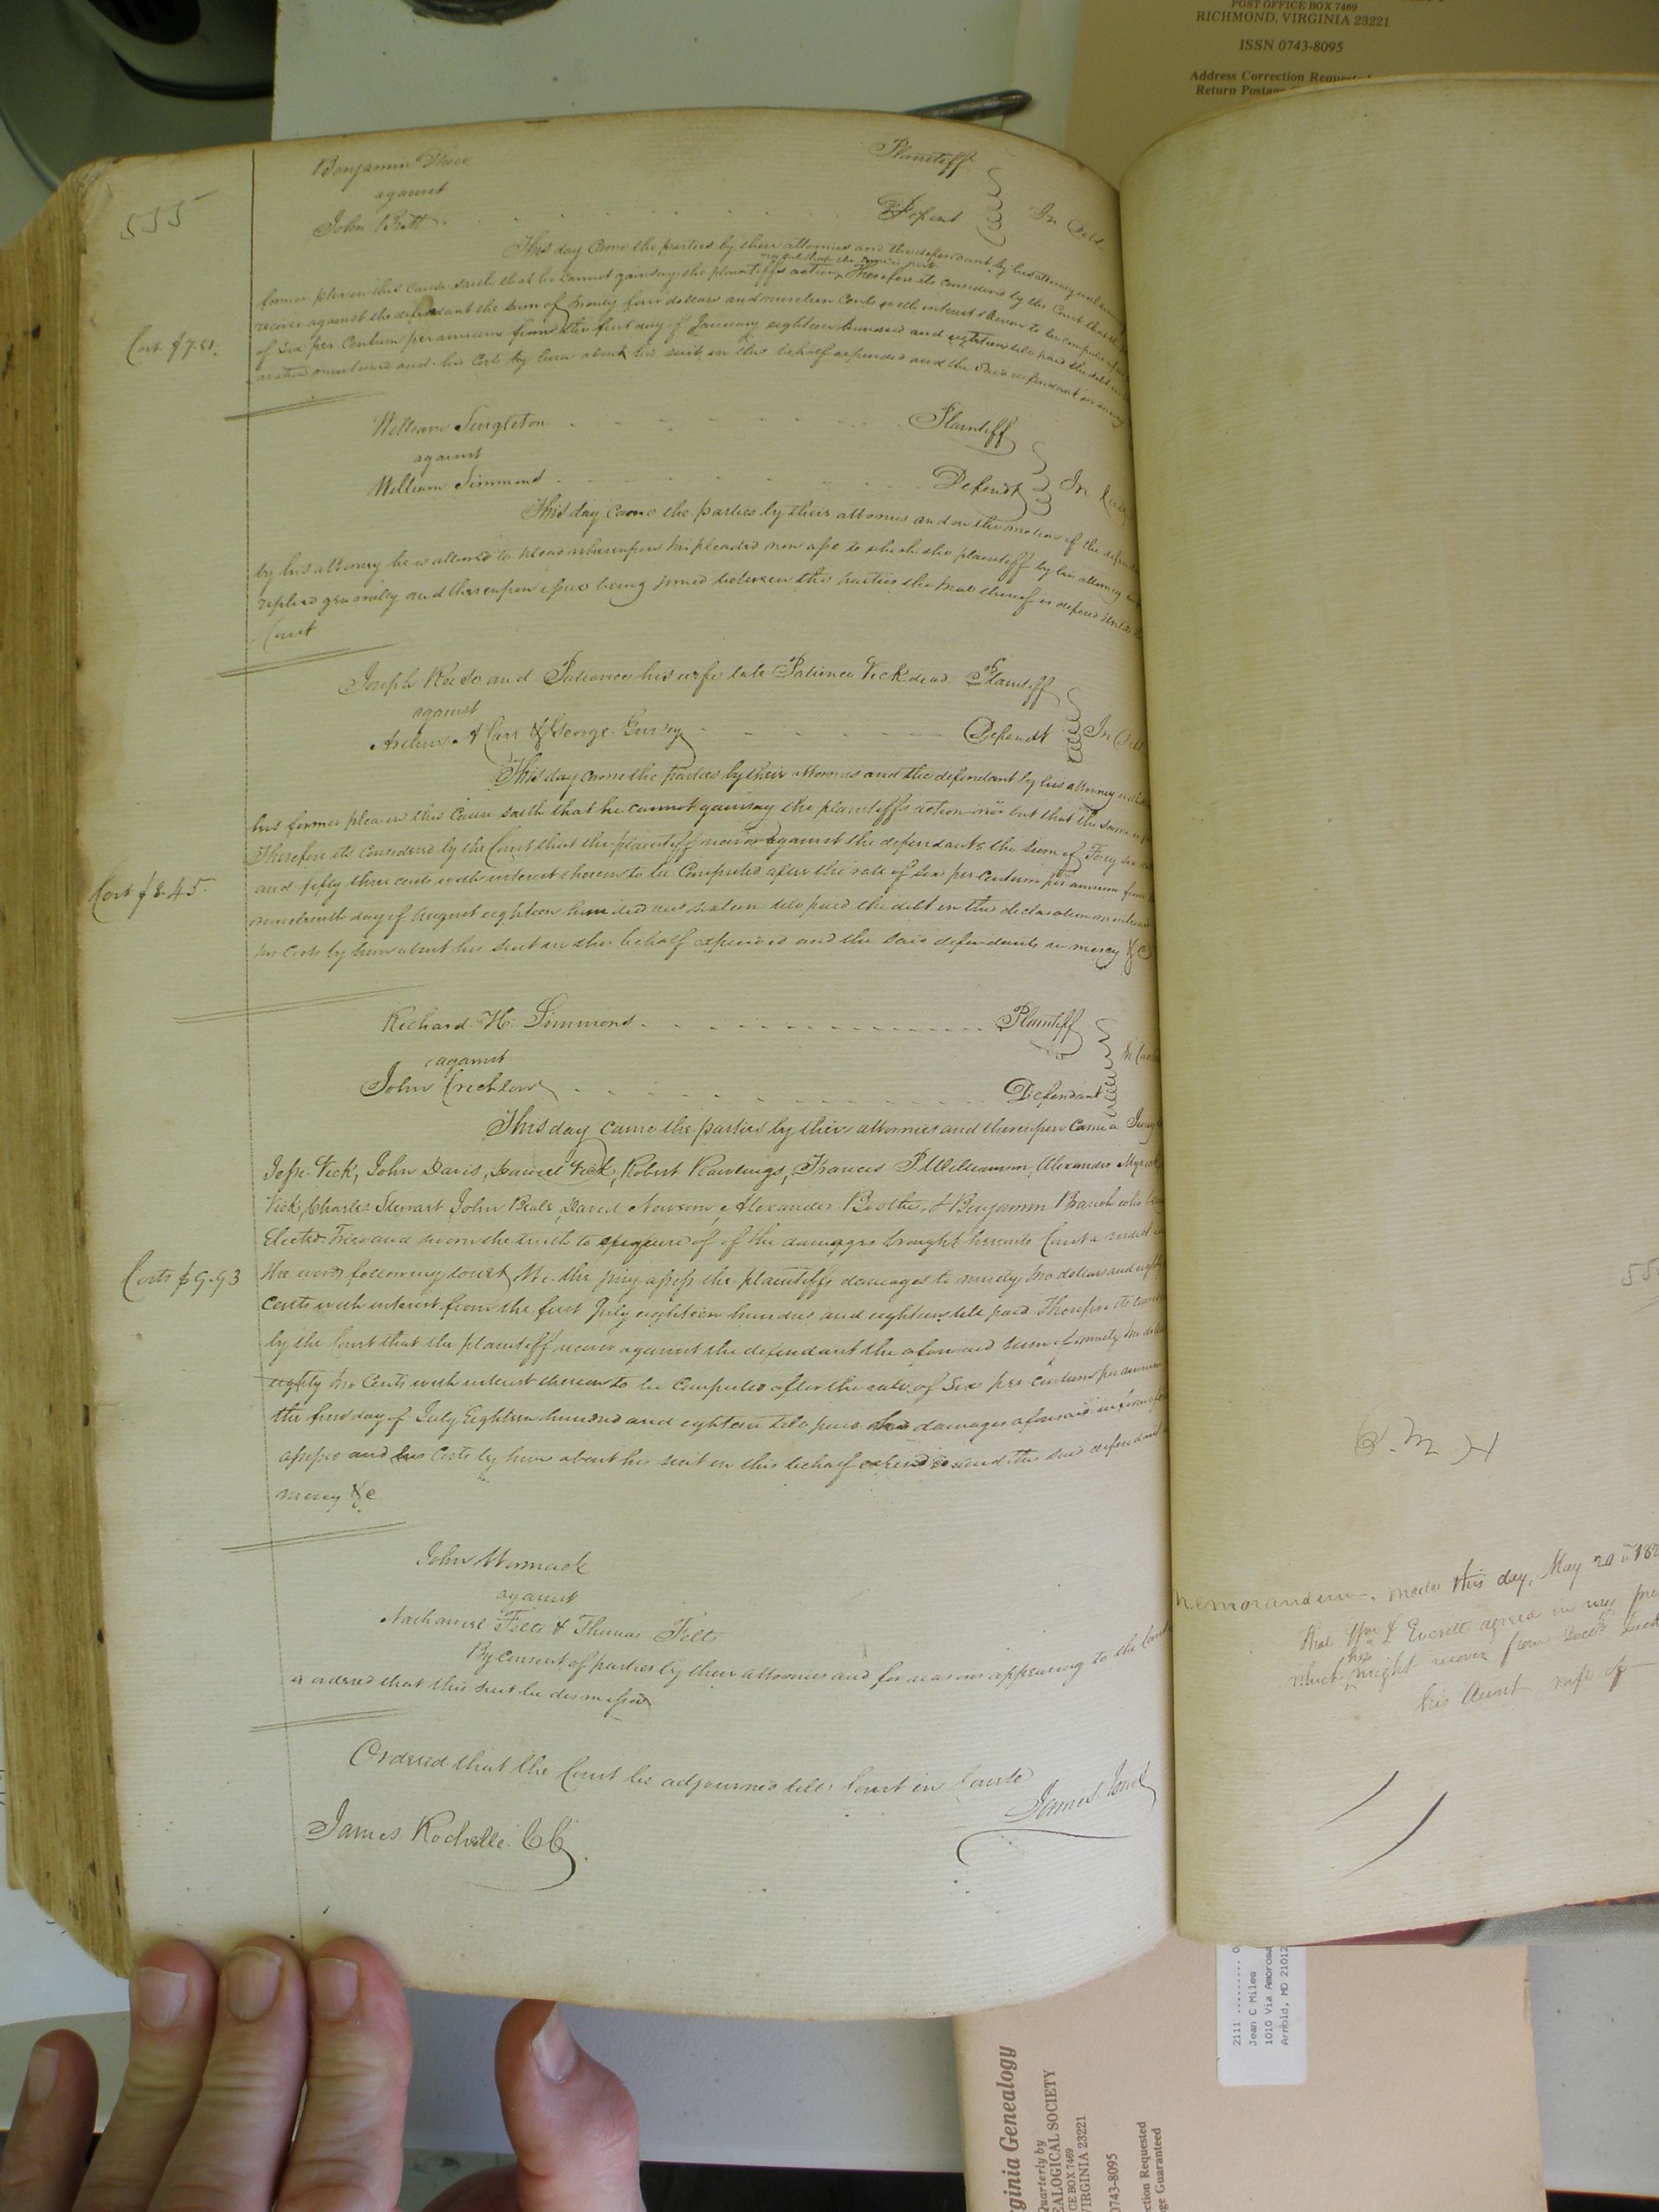 POST OFFICE BOX 7469
RICHMOND, VIRGINIA 23221
ISSN 0743-8095
Address Correction Requested
Return Postage
555
Benjamin
Plaintiff
against
John Britt
Defent
In Debt
This day Came the parties by their attornies and the defendant by his attorney
same
former plea in this Cause saith that he Cannot gainsay the plaintiffs action Therefore its considered by the Court that
recover against the defendant the sum of twenty four dollars and nineteen Cents with interest thereon to be computed after
Cost $7.81.
of Six per Centum per annum from the first day of January eighteen hundred and eighteen till paid the debt in
mentioned and his Costs by him about his suit in this behalf expended and the said defendant in mercy
William Singleton
Plaintiff
against
William Simmons
Defendt
In Case
This day Came the parties by their attornies and on the motion of the defendant
by his attorney he is allowed to plead whereupon he pleaded non asse to which the plaintiff by his attorney
replied generally and thereupon issue being joined between the parties the trial thereof is defered until
Court
Joseph Reese and Patience his wife late Patience Vick dead Plaintiff
against
Arthur A Carr & George Gurley
Defendt
In Debt
This day came the parties by their attornies and the defendant by his attorney
his former plea in this Cause saith that he cannot gainsay the plaintiffs action nor but that the same is just
Therefore its Considered by the Court that the plaintiff recover against the defendants the sum of Forty six
Cost $8.45.
and fifty three cents with interest thereon to be Computed after the rate of six per centum per annum from
nineteenth day of August eighteen hundred and sixteen till paid the debt in the declaration mentioned
his Costs by him about his suit in this behalf expended and the said defendants in mercy &c
Richard H. Simmons
Plaintiff
against
In Case
John Crichlow
Defendant
This day came the parties by their attornies and thereupon Came a Jury
Jesse Vick, John Davis, Daniel Vick, Robert Rawlings, Francis P Williamson, Alexander Myrick
Vick, Charles Stewart, John Beale, David Newsom, Alexander Boothe, & Benjamin Branch who being
Elected Tried and sworn the truth to of of the damages brought hereunto Court a verdict in
Costs $9.93
the words following towit, We the jury assess the plaintiffs damages to ninety two dollars and eighty
cents with interest from the first July eighteen hundred and eighteen till paid Therefore its considered
by the Court that the plaintiff recover against the defendant the aforesaid sum of ninety two dollars
eighty two Cents with interest thereon to be Computed after the rate of Six per centum per annum
the first day of July Eighteen hundred and eighteen till paid the damages aforesaid in form aforesaid
assessed and his Costs by him about his suit in this behalf expended and the said defendant in
mercy &c
John Womack
against
Nathaniel Felts & Thomas Felts
By Consent of parties by their attornies and for reasons appearing to the Court
is ordered that this suit be dismissed
Ordered that the Court be adjourned till Court in Course
James Rochelle CC
James
Memorandum. made this day, May 20
that Everett agreed in my
which he might recover from
his Aunt wife of
2111
Jean C Miles
1010 Via Amorosa
Arnold, MD 21012
ginia Genealogy
Quarterly by
EALOGICAL SOCIETY
CE BOX 7469
VIRGINIA 23221
0743-8095
ction Requested
ge Guaranteed